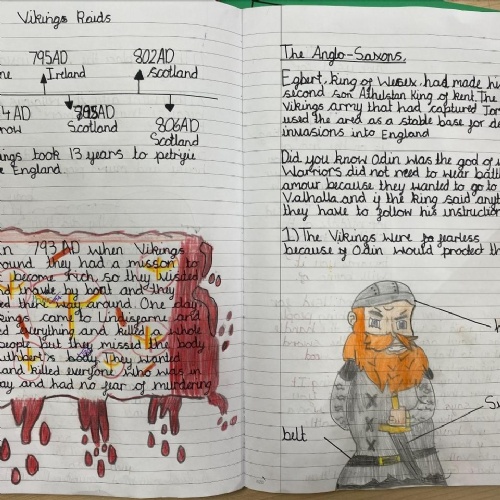 Vikings Raids
795AD
802AD
Ireland
Scotland
4AD
798AD
row
Scotland
Scotland
806AD
ings took 13 years to petryie
England.
in 793 AD when Vikings
ound they had a mission to
become rich, so they visited
and invade by boat and they
ed there way around. One day
kings came to Lindisfarne and
ed everything and killed a whole
people but they missed the body
uthbert's body They wanted
and killed everyone who was in
ay and had no fear of murdering
The Anglo-Saxons.
Egbert, king of Wessex, had made his
second son Athelstan king of kent. The
vikings army that had captured Tor
used the area as a stable base for de
invasions into England
Did you know Odin was the god of w
Warriors did not need to wear batt
amour because they wanted to go to
Valhalla and if the king said anyt
they have to follow his instruction
1) The Vikings were so fearless
because if Odin would protect th
h
Su
belt